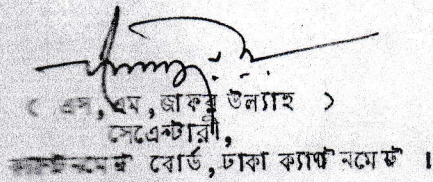 ( এস, এম, জাফর উল্যাহ )
সেক্রেটারী,
ক্যান্টনমেন্ট বোর্ড, ঢাকা ক্যান্টনমেন্ট ।